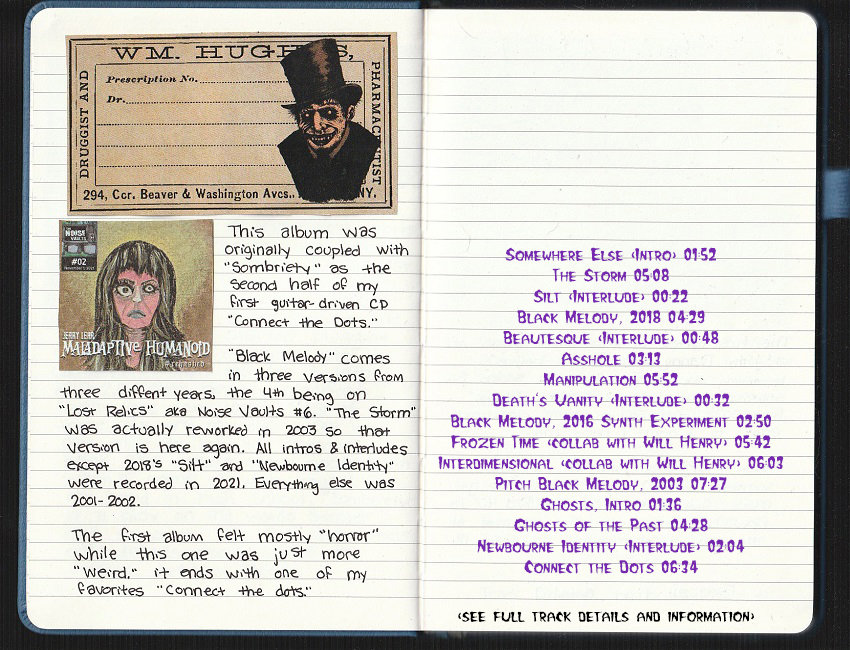 WM. HUGHES,
Prescription No.
Dr.
DRUGGIST AND
PHARMACEUTIST
294, Cor. Beaver & Washington Aves., NY.
NOISE
VAULTS
#02
November 5 2021
JERRY LEHR
MALADAPTIVE HUMANOID
#remastered
This album was
originally coupled with
"Sombriety" as the
second half of my
first guitar-driven CD
"Connect the Dots."
"Black Melody" comes
in three versions from
three diffent years, the 4th being on
"Lost Relics" aka Noise Vaults #6. "The Storm"
was actually reworked in 2003 so that
version is here again. All intros & interludes
except 2018's "Silt" and "Newbourne Identity"
were recorded in 2021. Everything else was
2001-2002.
The first album felt mostly "horror"
while this one was just more
"weird." it ends with one of my
favorites "Connect the dots."
SOMEWHERE ELSE (INTRO) 01:52
THE STORM 05:08
SILT (INTERLUDE) 00:22
BLACK MELODY, 2018 04:29
BEAUTESQUE (INTERLUDE) 00:48
ASSHOLE 03:13
MANIPULATION 05:52
DEATH'S VANITY (INTERLUDE) 00:32
BLACK MELODY, 2016 SYNTH EXPERIMENT 02:50
FROZEN TIME (COLLAB WITH WILL HENRY) 05:42
INTERDIMENSIONAL (COLLAB WITH WILL HENRY) 06:03
PITCH BLACK MELODY, 2003 07:27
GHOSTS, INTRO 01:36
GHOSTS OF THE PAST 04:28
NEWBOURNE IDENTITY (INTERLUDE) 02:04
CONNECT THE DOTS 06:34
(SEE FULL TRACK DETAILS AND INFORMATION)